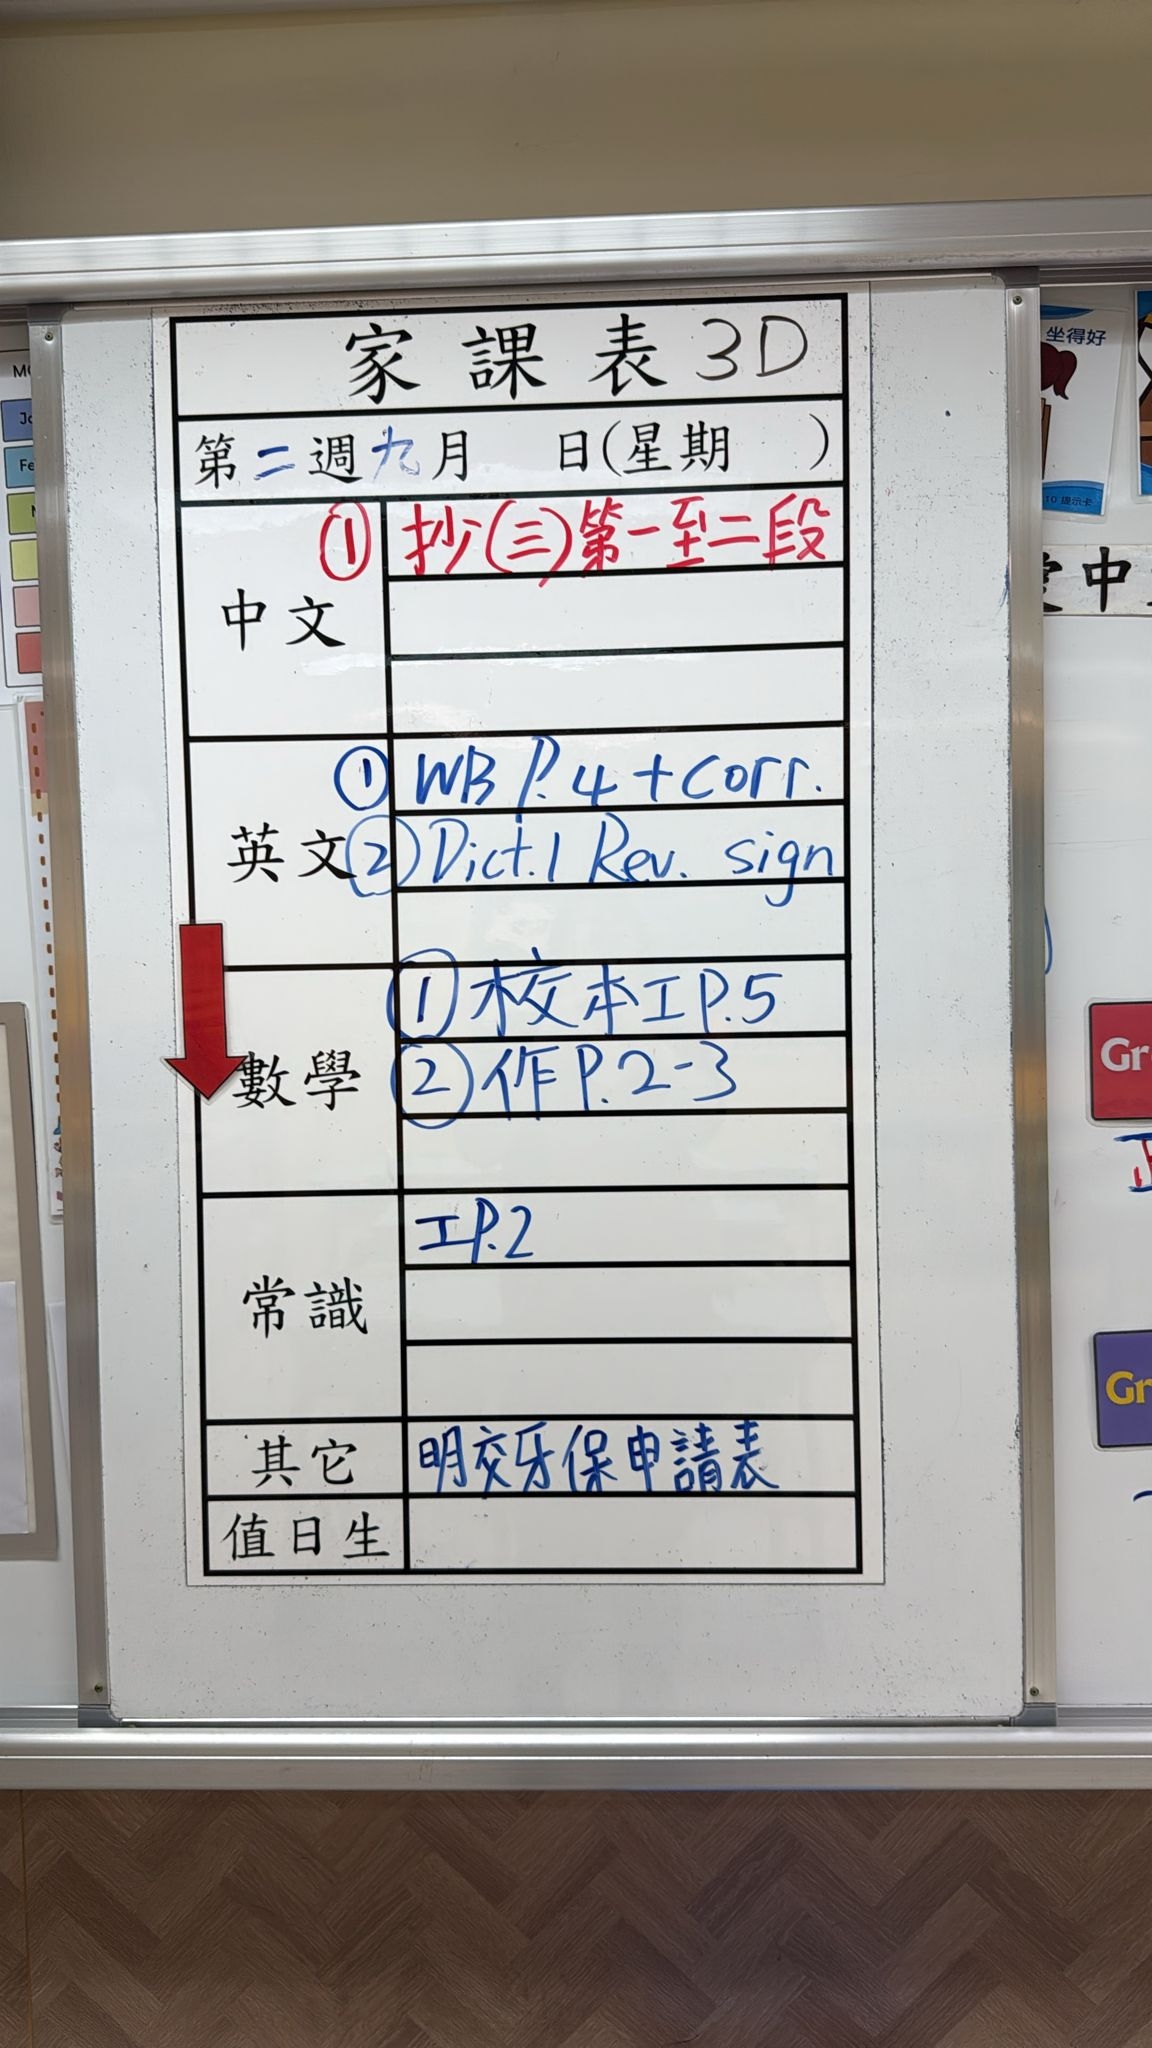 家課表 3D
第二週九月 日(星期 )
中文
① 抄(三)第一至二段
英文
① WB P.4 + Corr.
② Dict.1 Rev. sign
數學
① 校本工P.5
② 作P.2-3
常識
工P.2
其它
明交牙保申請表
值日生
坐得好
10 提示卡
中
Gr
Gr
Fe